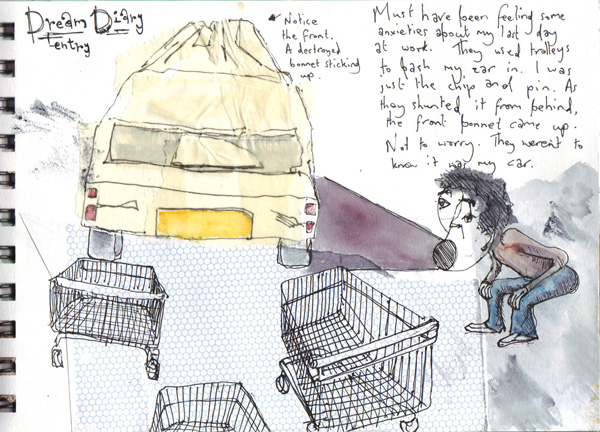 Dream Diary
Entry
Notice
the front.
A destroyed
bonnet sticking
up.
Must have been feeling some
anxieties about my last day
at work. They used trolleys
to bash my car in. I was
just the chip and pin. As
they shunted it from behind,
the front bonnet came up.
Not to worry. They weren't to
know it was my car.